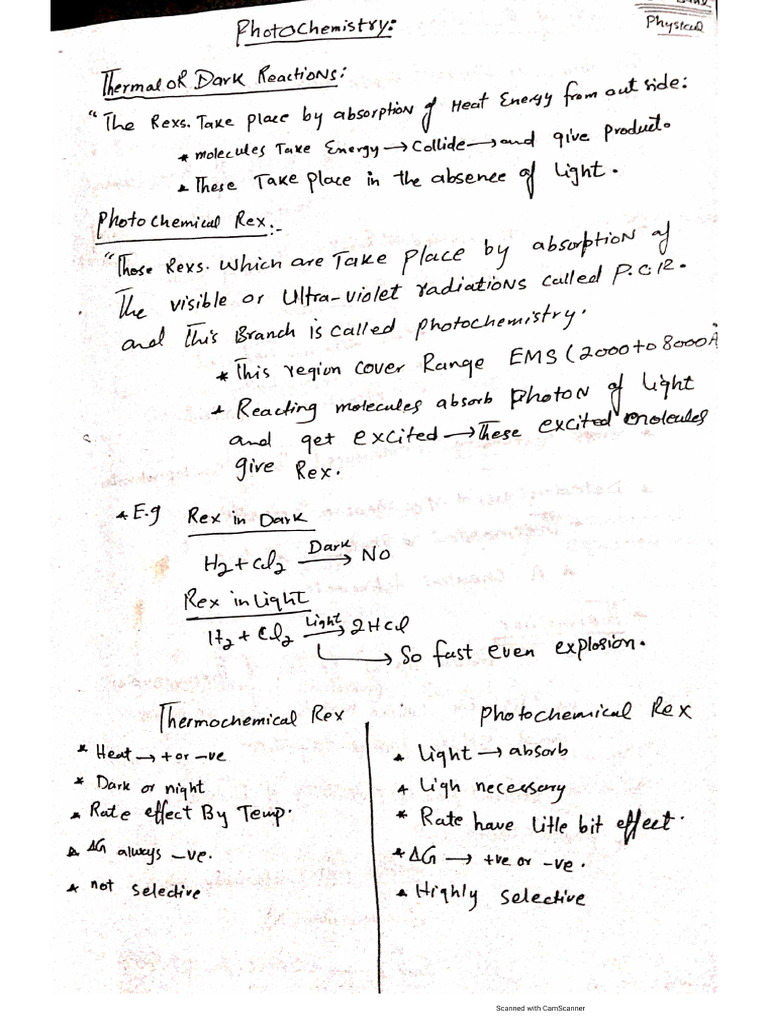 Photochemistry:
Physical
Thermal OR Dark Reactions:
"The Rexs. Take place by absorption of Heat Energy from out side:
* molecules Take Energy → Collide → and give product.
* These Take Place in the absence of light.
Photochemical Rex:-
"Those Rexs. which are Take place by absorption of
The visible or Ultra-violet radiations called P.C.R.
and this Branch is called photochemistry.
* This region cover Range EMS (2000 to 8000A
* Reacting molecules absorb photon of light
and get excited → These excited molecules
give Rex.
* E.g Rex in Dark
H2 + Cl2 Dark → No
Rex in Light
H2 + Cl2 Light → 2HCl
→ So fast even explosion.
Thermochemical Rex
* Heat → + or -ve
* Dark or night
* Rate effect By Temp.
* ΔG always -ve.
* not selective
Photochemical Rex
* Light → absorb
* Ligh necessary
* Rate have litle bit effect.
* ΔG → +ve or -ve.
* Highly selective
Scanned with CamScanner